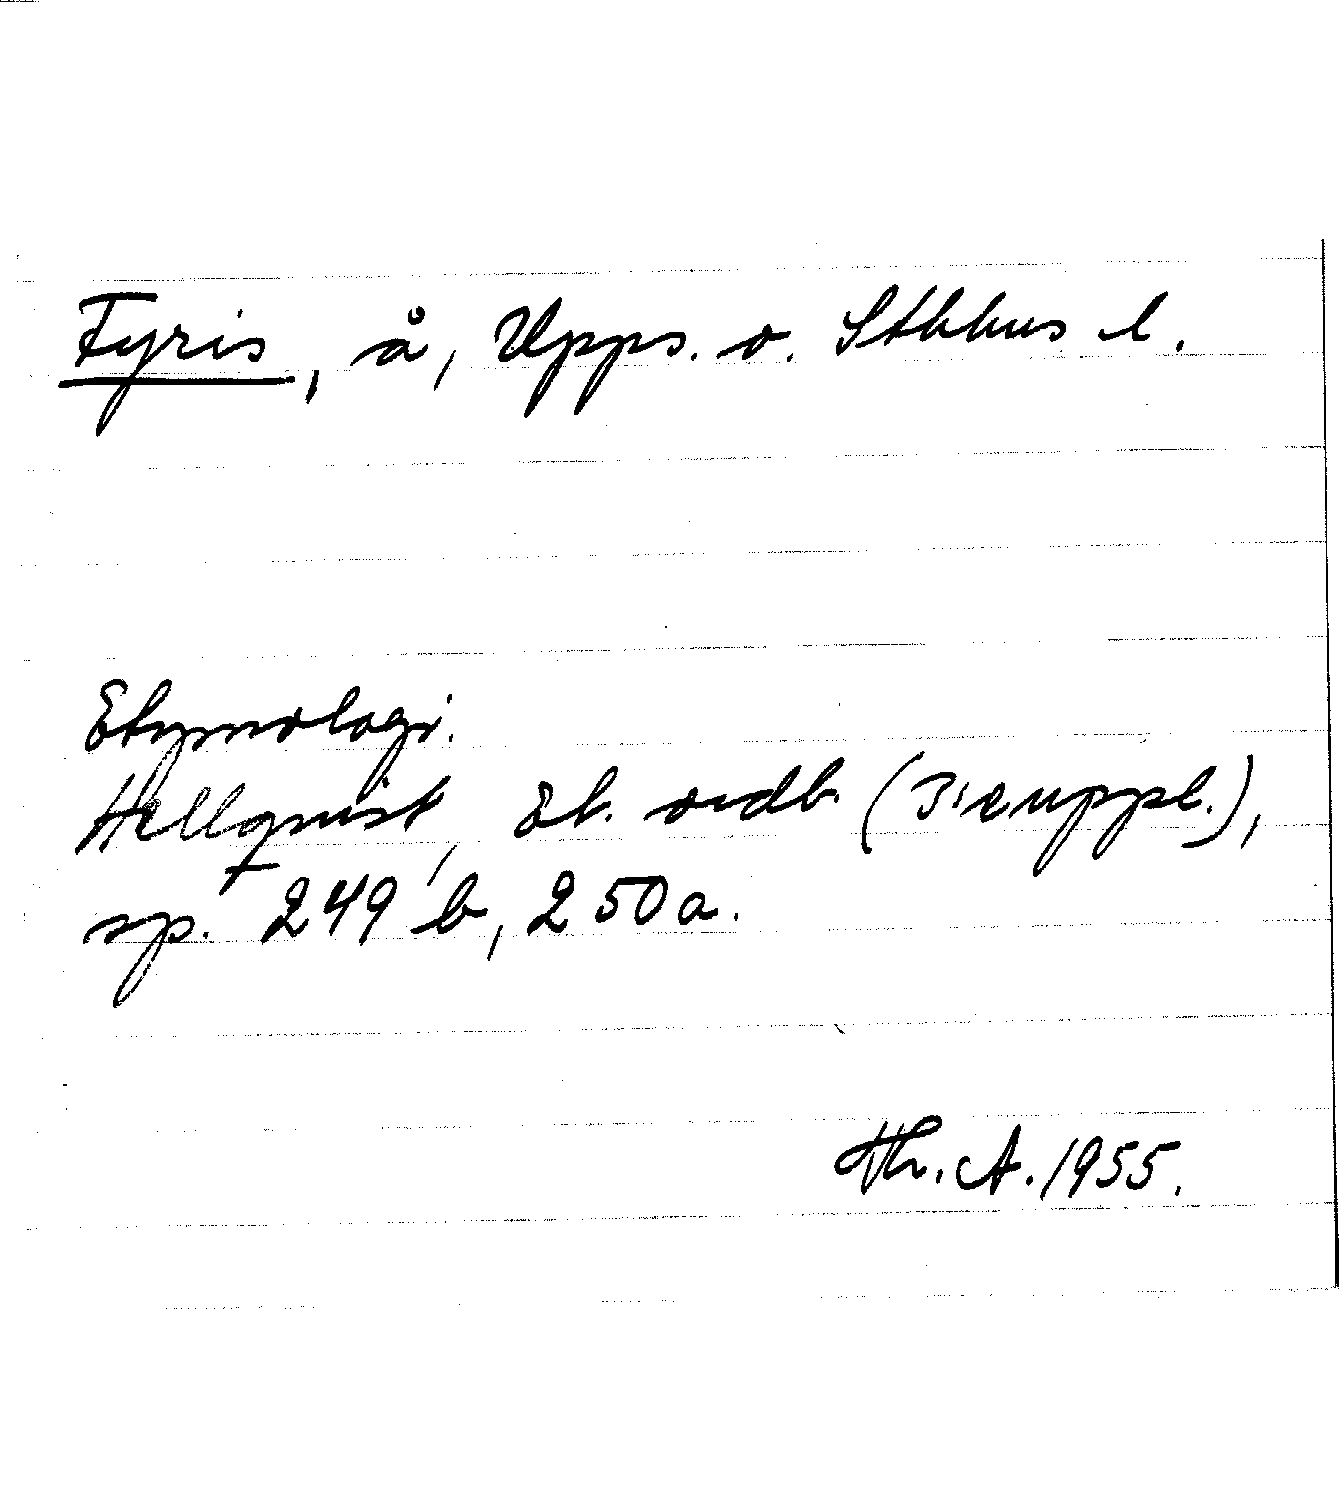 Fyris, å, Upps. o. Sthlms l.
Etymologi.
Hellquist, Et. ordb. (3:e uppl.),
sp. 249 b, 250 a.
Th. A. 1955.